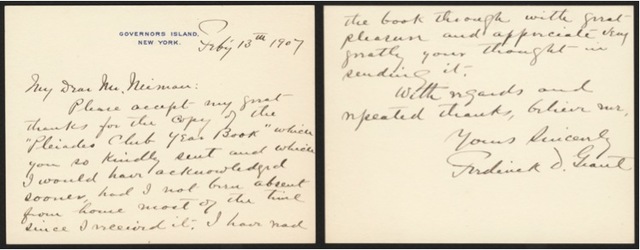 GOVERNORS ISLAND,
NEW YORK.
Feb'y 13th 1907
My Dear Mr. Neiman:
Please accept my great
thanks for the copy of the
"Pleiades Club Year Book" which
you so kindly sent and which
I would have acknowledged
sooner, had I not been absent
from home most of the time
since I received it. I have read
the book through with great
pleasure and appreciate very
greatly your thought in
sending it.
With regards and
repeated thanks, believe me,
Yours Sincerely
Frederick D. Grant